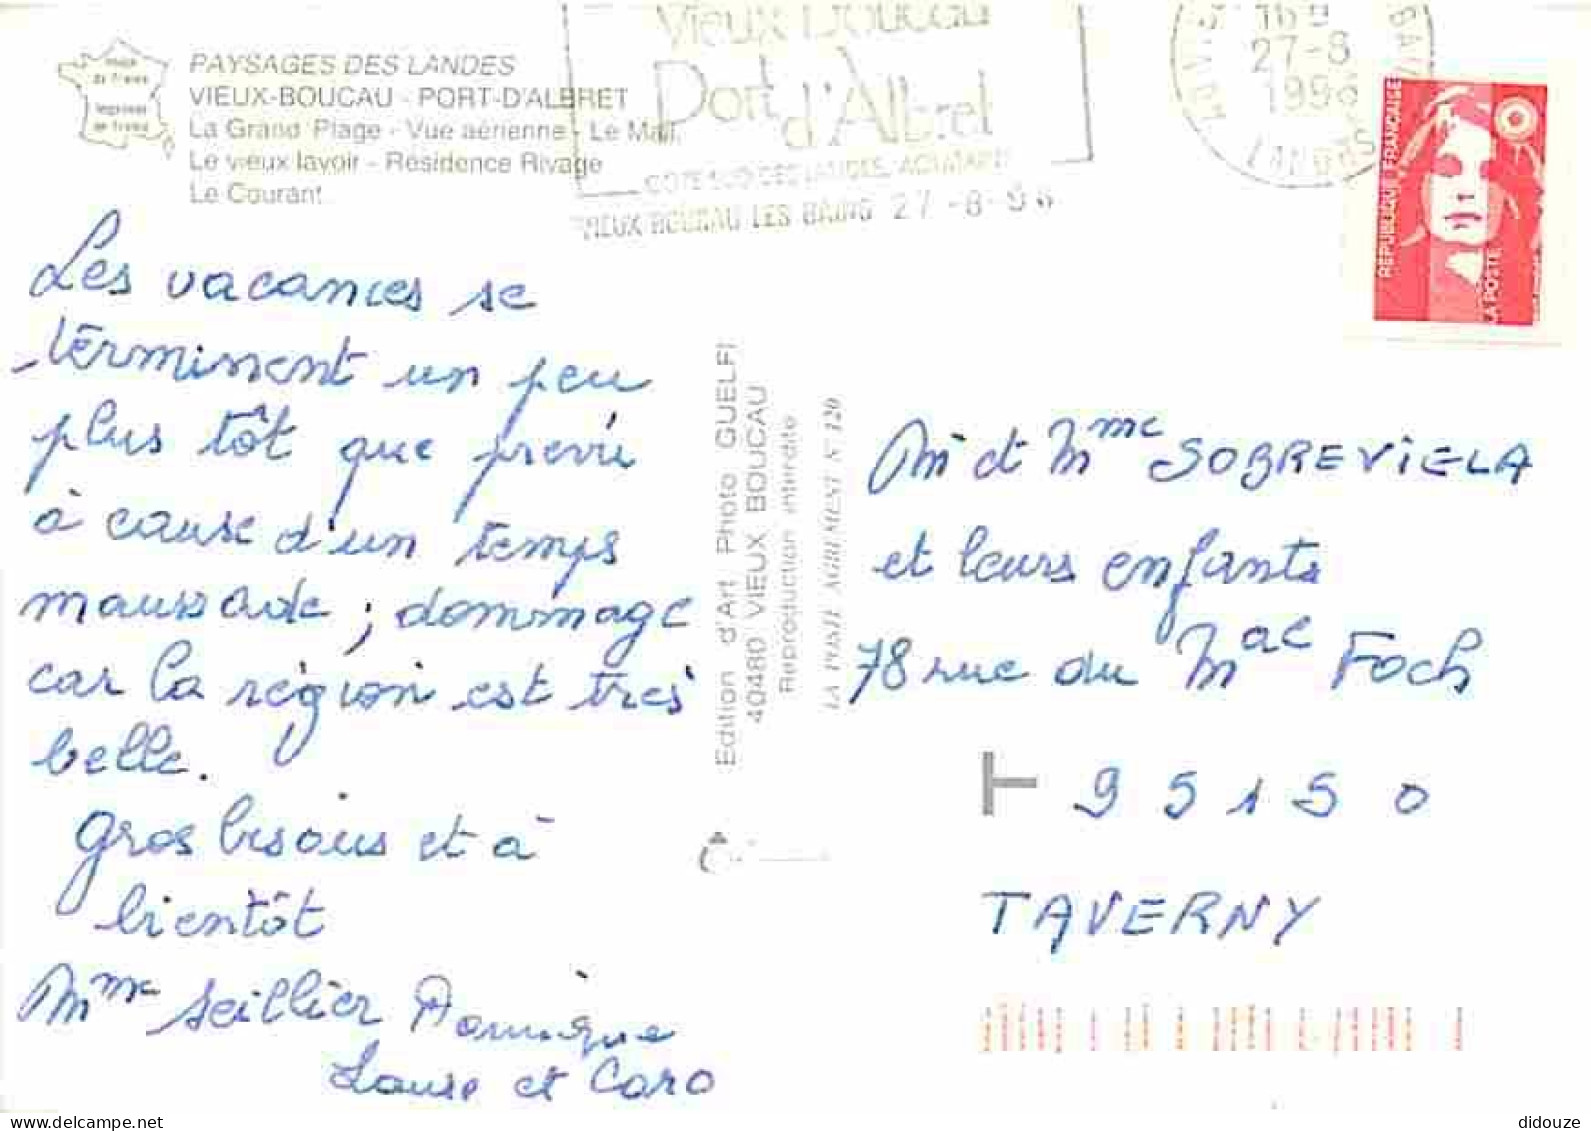 Image
de France
Imprimée
en France
PAYSAGES DES LANDES
VIEUX-BOUCAU - PORT-D'ALBRET
La Grand' Plage - Vue aérienne - Le Mail.
Le vieux lavoir - Résidence Rivage
Le Courant
Vieux Boucau
Port d'Albret
COTE SUD DES LANDES, AQUITAINE
VIEUX BOUCAU LES BAINS 27-8-96
27-8
LANDES
REPUBLIQUE FRANÇAISE
LA POSTE
Les vacances se
terminent un peu
plus tôt que prévu
à cause d'un temps
maussade ; dommage
car la région est très
belle.
Gros bisous et à
bientôt
Mme Seillier Dominique
Laure et Caro
Edition d'Art Photo GUELFI
40480 VIEUX BOUCAU
Reproduction interdite
LA POSTE AGREMENT N° 120
Mr et Mme SOBREVIELA
et leurs enfants
78 rue du Mal Foch
95150
TAVERNY
didouze